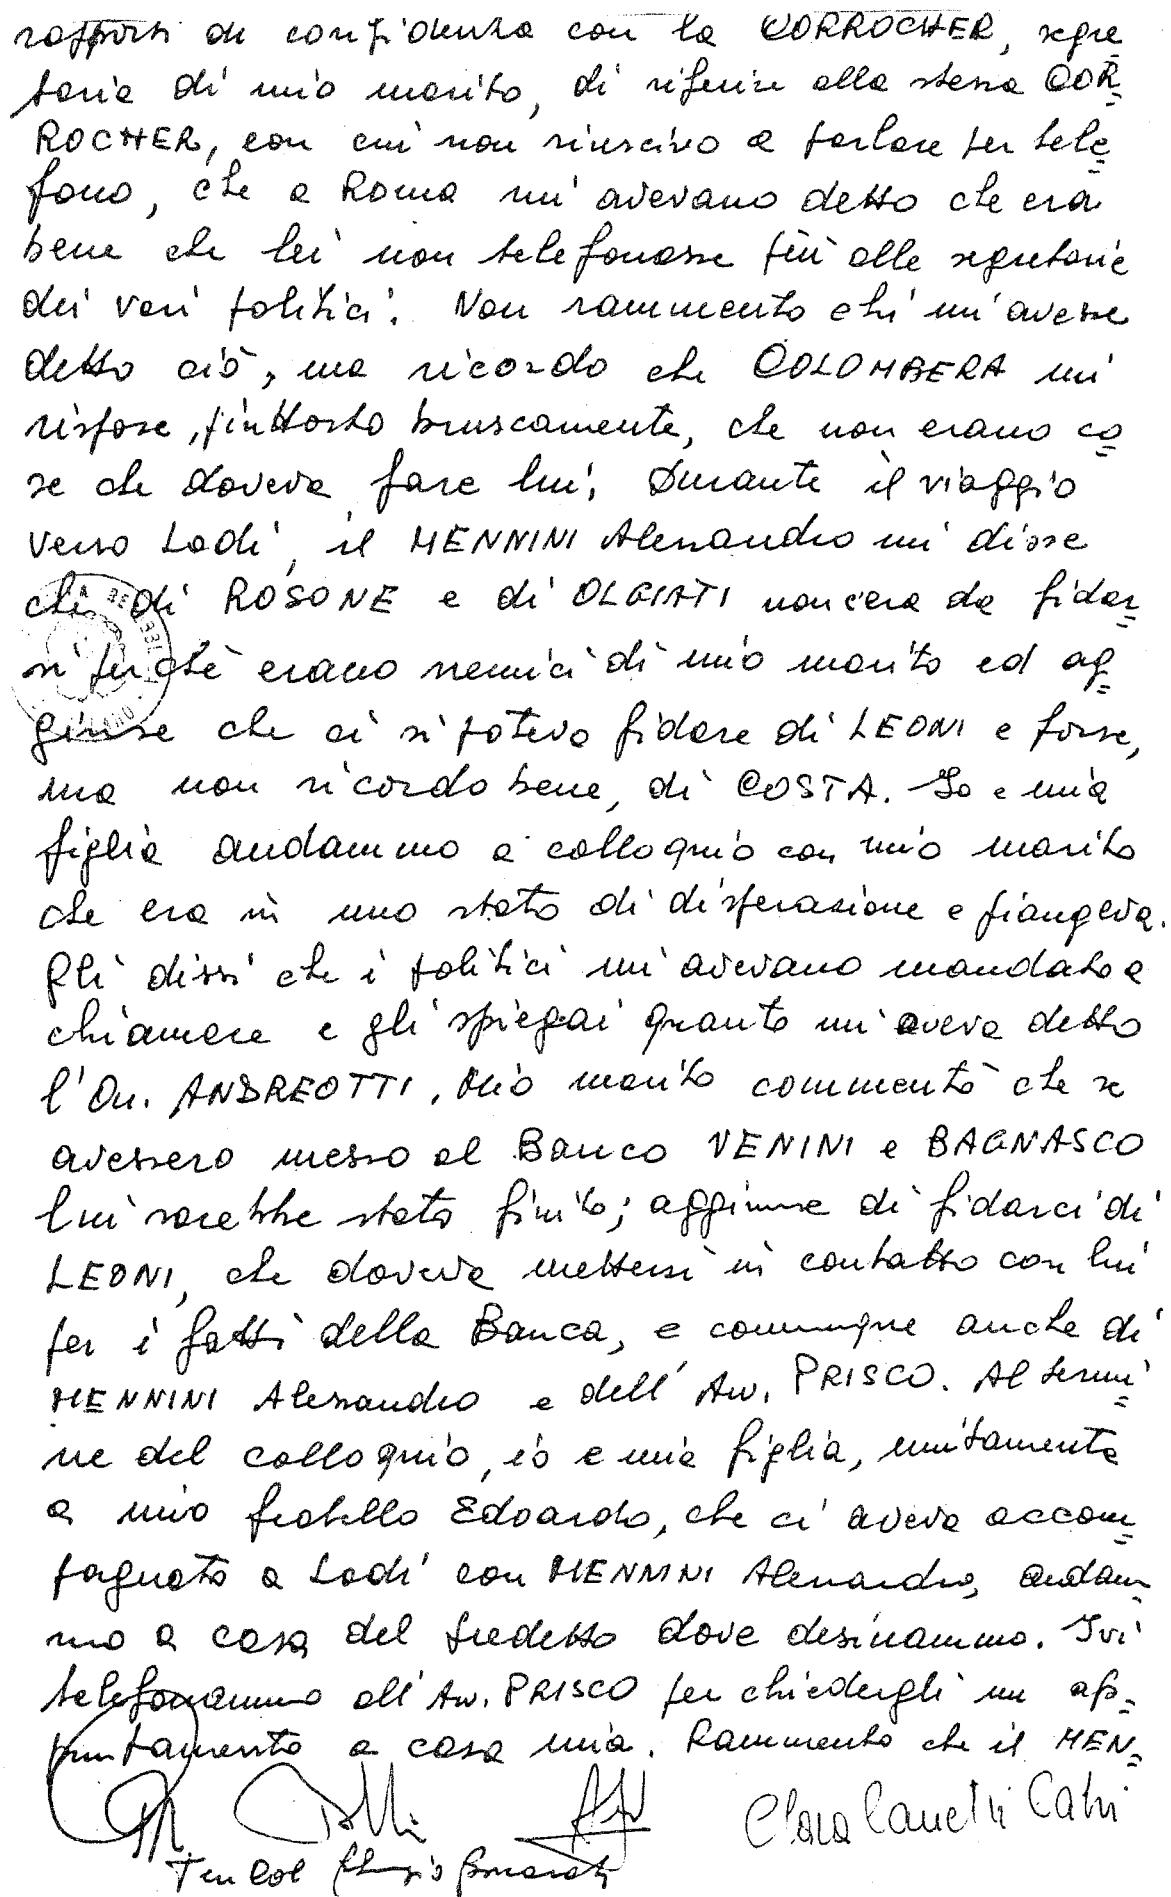 rapporti di confidenza con la CORROCHER, segre=
taria di mio marito, di riferire alla stessa COR=
ROCHER, con cui non riuscivo a parlare per tele=
fono, che a Roma mi avevano detto che era
bene che lei non telefonasse più alle segretarie
dei vari politici. Non rammento chi mi avesse
detto ciò, ma ricordo che COLOMBERA mi
rispose, piuttosto bruscamente, che non erano co=
se che doveva fare lui. Durante il viaggio
verso Lodi, il MENNINI Alessandro mi disse
che di ROSONE e di OLGIATI non c'era da fidar=
si perchè erano nemici di mio marito ed ag=
giunse che ci si poteva fidare di LEONI e forse,
ma non ricordo bene, di COSTA. Io e mia
figlia andammo a colloquio con mio marito
che era in uno stato di disperazione e piangeva.
Gli dissi che i politici mi avevano mandato a
chiamare e gli spiegai quanto mi aveva detto
l'On. ANDREOTTI. Mio marito commentò che se
avessero messo al Banco VENINI e BAGNASCO
lui sarebbe stato finito; aggiunse di fidarci di
LEONI, che doveva mettersi in contatto con lui
per i fatti della Banca, e comunque anche di
MENNINI Alessandro e dell'Avv. PRISCO. Al termi=
ne del colloquio, io e mia figlia, unitamente
a mio fratello Edoardo, che ci aveva accom=
pagnato a Lodi con MENNINI Alessandro, andam=
mo a casa del predetto dove desinammo. Ivi
telefonammo all'Avv. PRISCO per chiedergli un ap=
puntamento a casa mia. Rammento che il MEN=
Clara Canetti Calvi
Ten Col